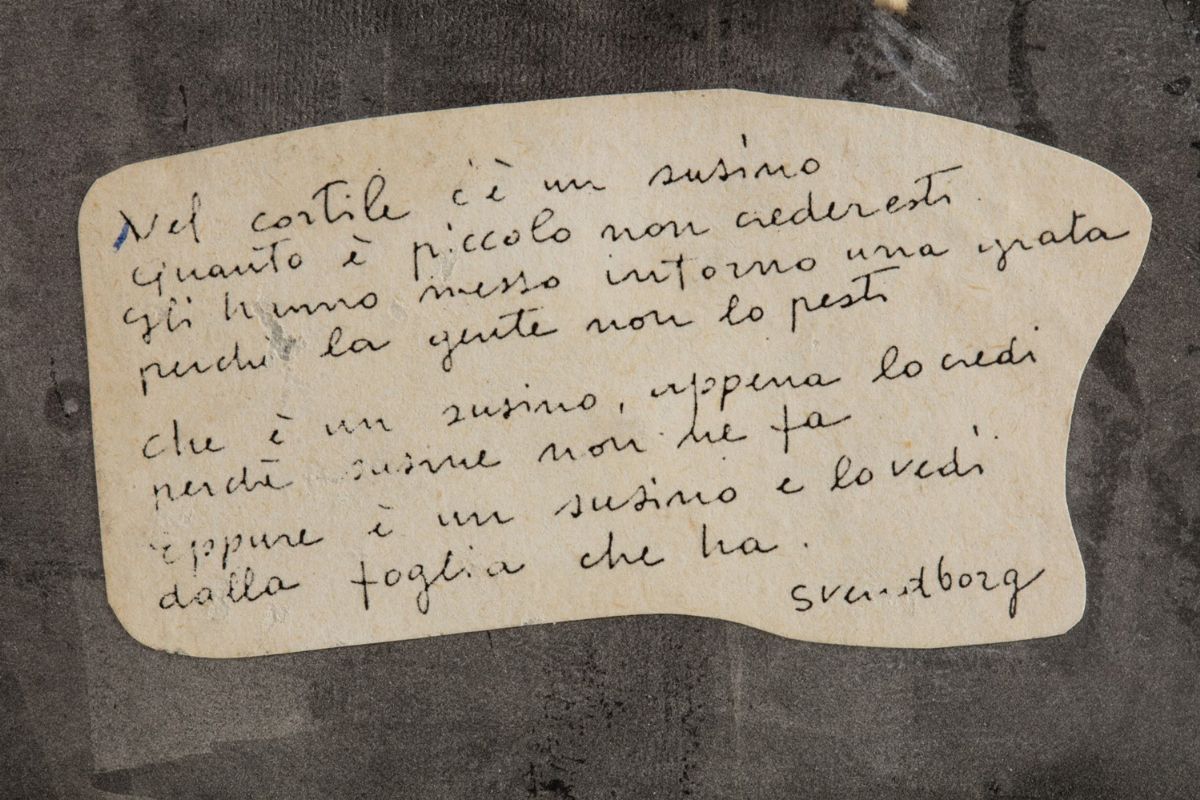 Nel cortile c'è un susino
Quanto è piccolo non crederesti
gli hanno messo intorno una grata
perchè la gente non lo pesti
che è un susino, appena lo credi
perchè susine non ne fa
Eppure è un susino e lo vedi
dalla foglia che ha.
Svendtborg